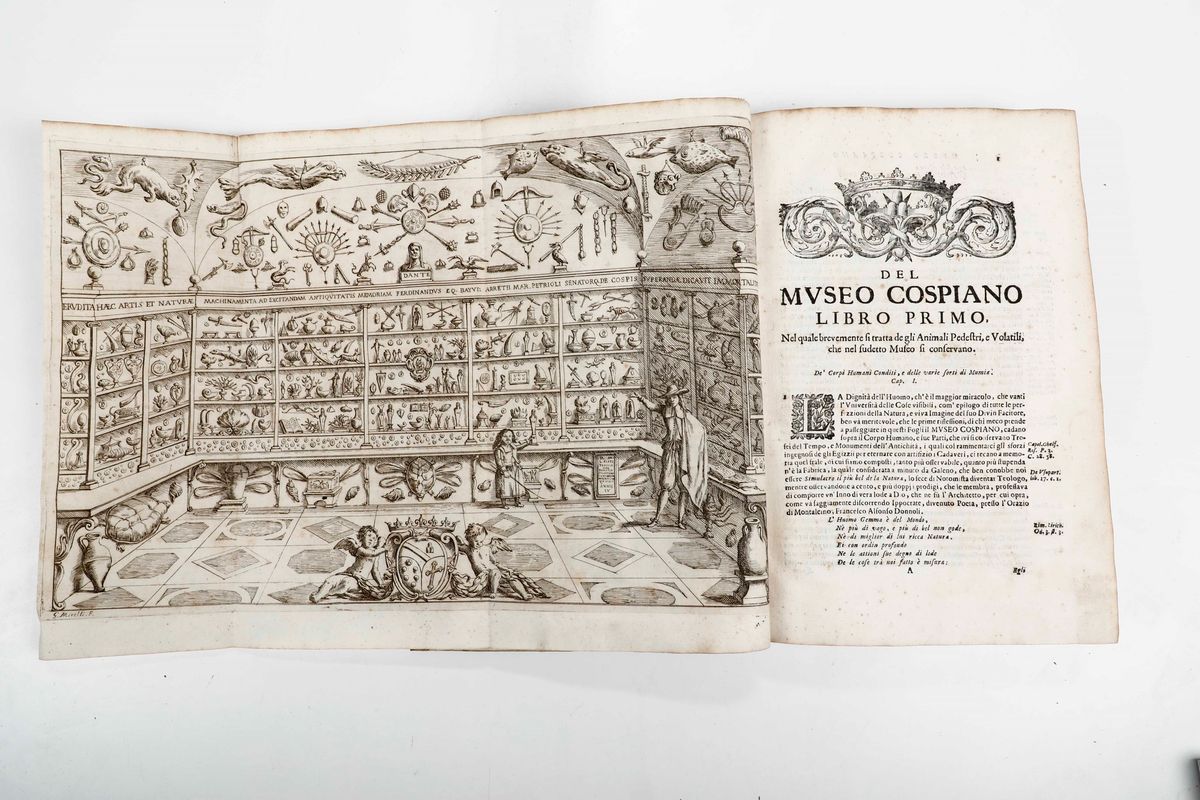 DANTE
ERVDITA HÆC ARTIS ET NATVRÆ MACHINAMENTA AD EXCITANDAM ANTIQVITATIS MEMORIAM FERDINANDVS EQ. BAIVL. ARRETII MAR. PETRIOLI SENATORQ. DE COSPIS
G. Mitelli. F.
DEL
MVSEO COSPIANO
LIBRO PRIMO.
Nel quale brevemente ſi tratta de gli Animali Pedeſtri, e Volatili,
che nel ſudetto Muſeo ſi conſervano.
De' Corpi Humani Conditi, e delle varie ſorti di Mumie.
Cap. I.
LA Dignità dell'Huomo, ch'è il maggior miracolo, che vanti
l'Univerſità delle Coſe viſibili, com'epilogo di tutte le per-
fezzioni della Natura, e viva Imagine del ſuo Divin Facitore,
ben và meritevole, che le prime rifleſſioni, di chi meco prende
a paſſeggiare in queſti Fogli il MVSEO COSPIANO, cadano
ſopra il Corpo Humano, e ſue Parti, che ivi ſi conſervano Tro-
fei del Tempo, e Monumenti dell'Antichità, i quali col rammentarci gli sforzi
ingegnoſi de gli Egizzii per eternare con artifizio i Cadaveri, ci recano a memo-
ria quel frale, di cui ſiamo compoſti, tanto più oſſervabile, quanto più ſtupenda
n'è la Fabrica, la quale conſiderata a minuto da Galeno, che ben conobbe noi
eſſere Simulacro il più bel de la Natura, lo fece di Notomiſta diventar Teologo,
mentre oſſervandone a cento, e più doppj i prodigi, che le membra, profeſſava
di comporre vn' Inno di vera lode a Dio, che ne fù l'Architetto, per cui opra,
come và ſaggiamente diſcorrendo Ippocrate, divenuto Poeta, preſſo l'Orazio
di Montalcino, Franceſco Alfonſo Donnoli.
L' Huomo Gemma è del Mondo,
Nè più di vago, e più di bel non gode,
Nè di miglior di lui ricca Natura.
Ei con ordin profondo
Ne le attioni ſue degno di lode
De le coſe trà noi fatto è miſura:
A
Egli
C. 28. 58.
De Vſupart.
lib. 17. c. 1.
Rim. Liric.
Od. 3. ſt. 3.